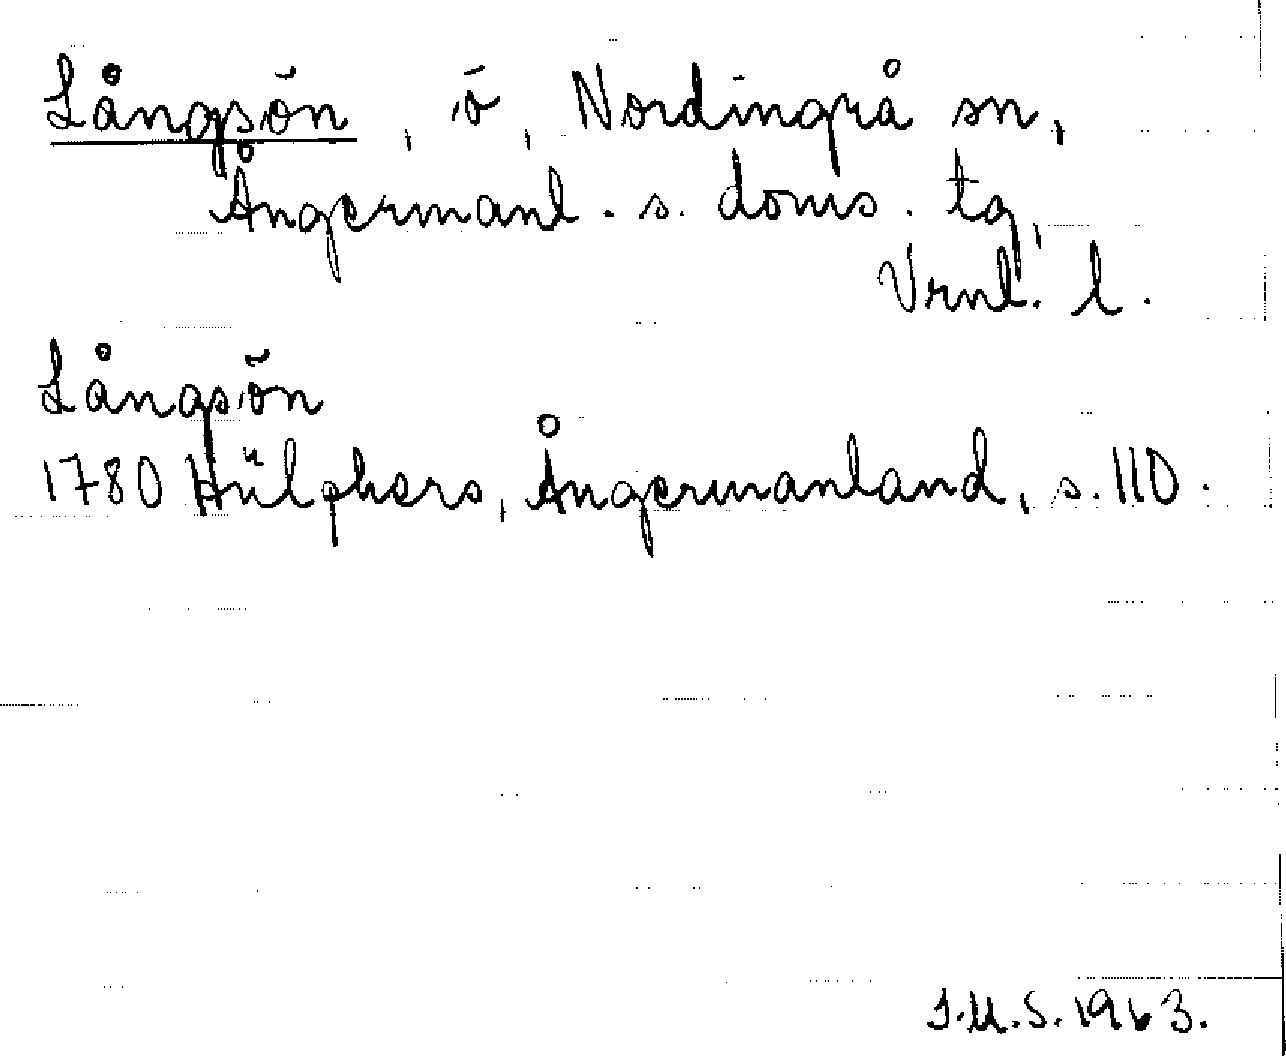 Långsön, ö, Nordingrå sn,
Ångermanl. s. doms. tg,
Vrnl. l.
Långsön
1780 Hülphers, Ångermanland, s. 110.
I.M.S. 1963.